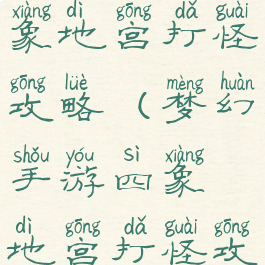 xiàng dì gōng dǎ guài
象地宫打怪
gōng lüè mèng huàn
攻略(梦幻
shǒu yóu sì xiàng
手游四象
dì gōng dǎ guài gōng
地宫打怪攻